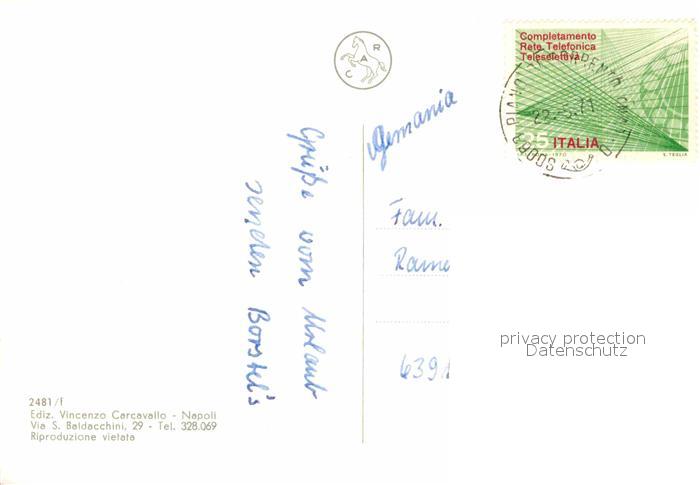 C A R
Completamento
Rete Telefonica
Teleselettiva
25 ITALIA
1970 S. TEGLIA
Germania
Fam.
Rame
6391
Grüße vom Urlaub
senden Borstel's
privacy protection
Datenschutz
2481/f
Ediz. Vincenzo Carcavallo - Napoli
Via S. Baldacchini, 29 - Tel. 328.069
Riproduzione vietata